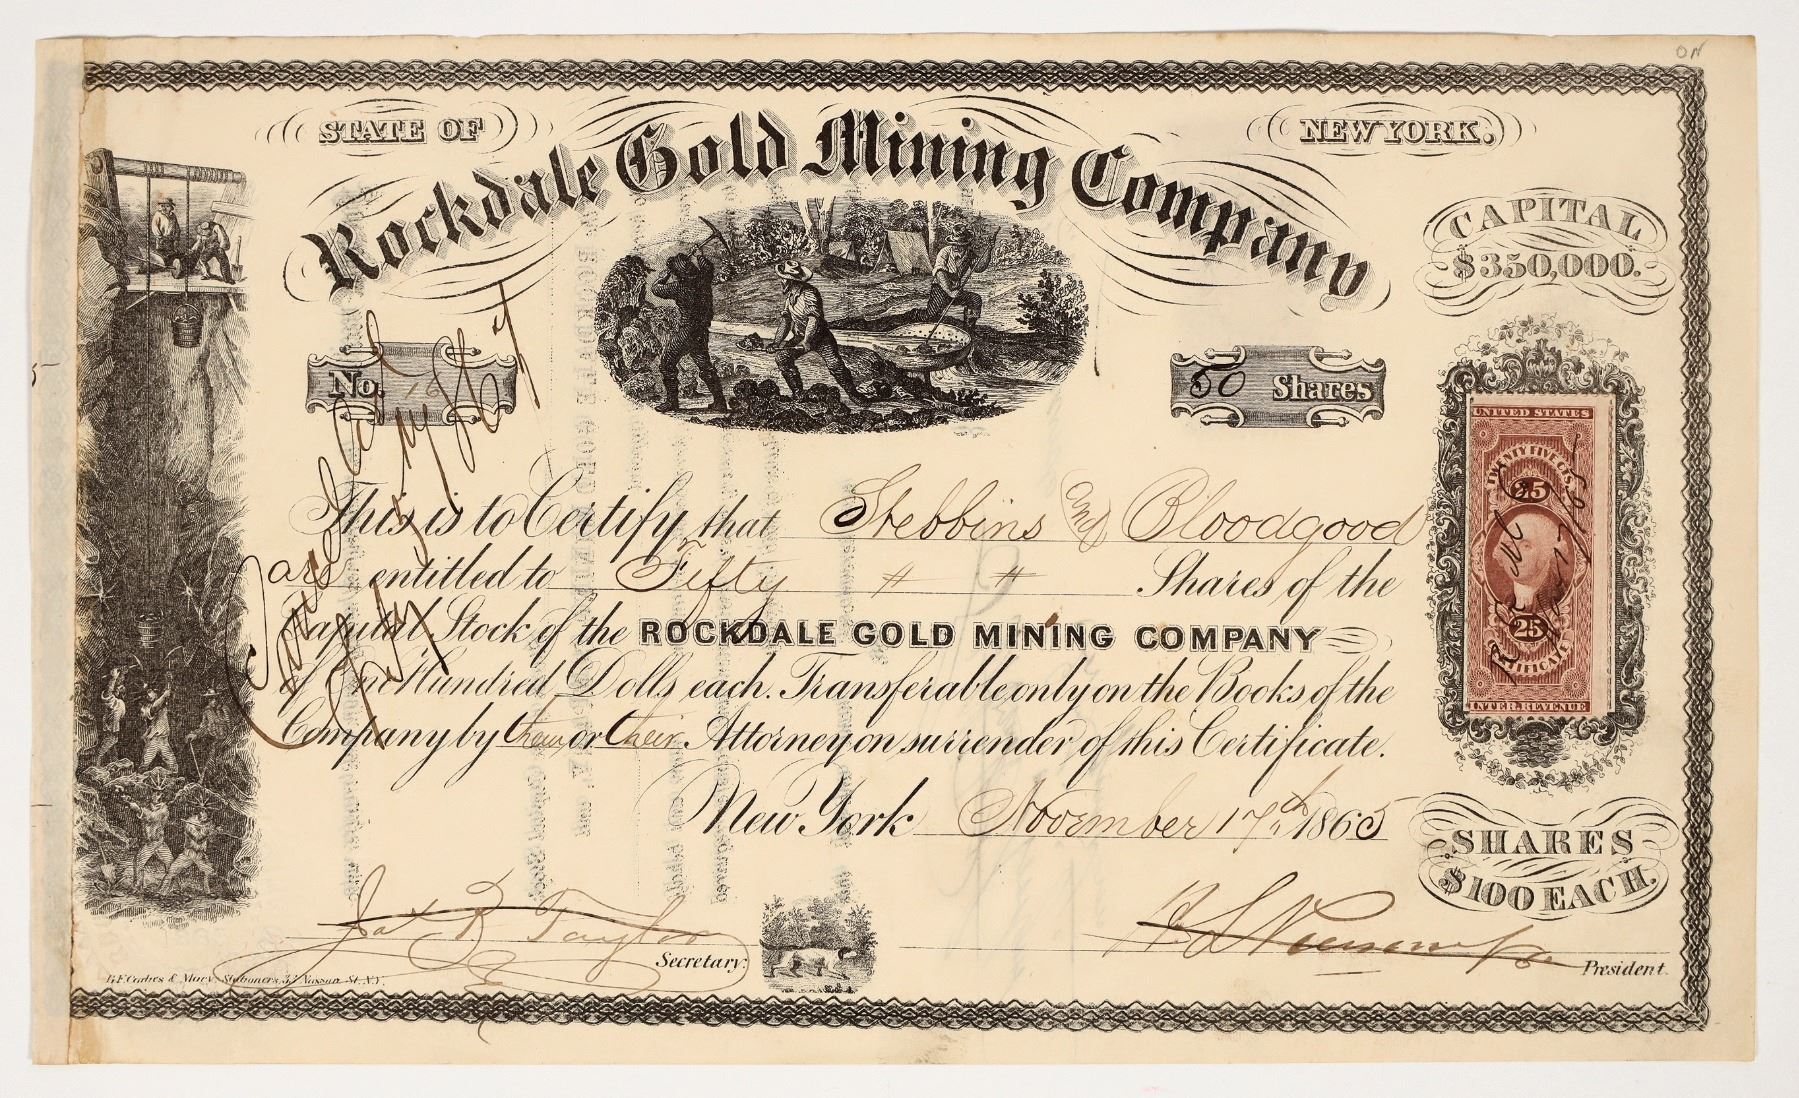 ON
STATE OF
NEW YORK.
Rockdale Gold Mining Company
CAPITAL
$350,000.
No. 16
50 Shares
This is to Certify that Stebbins and Bloodgood
are entitled to Fifty # # Shares of the
Capital Stock of the ROCKDALE GOLD MINING COMPANY
of One Hundred Dolls each. Transferable only on the Books of the
Company by them or their Attorney on surrender of this Certificate.
New York November 17th 1865
UNITED STATES
TWENTY FIVE CTS.
25
25
CERTIFICATE
INTER. REVENUE
SHARES
$100 EACH.
Jas R Taylor
Secretary.
President.
Stationers, Nassau St. N.Y.